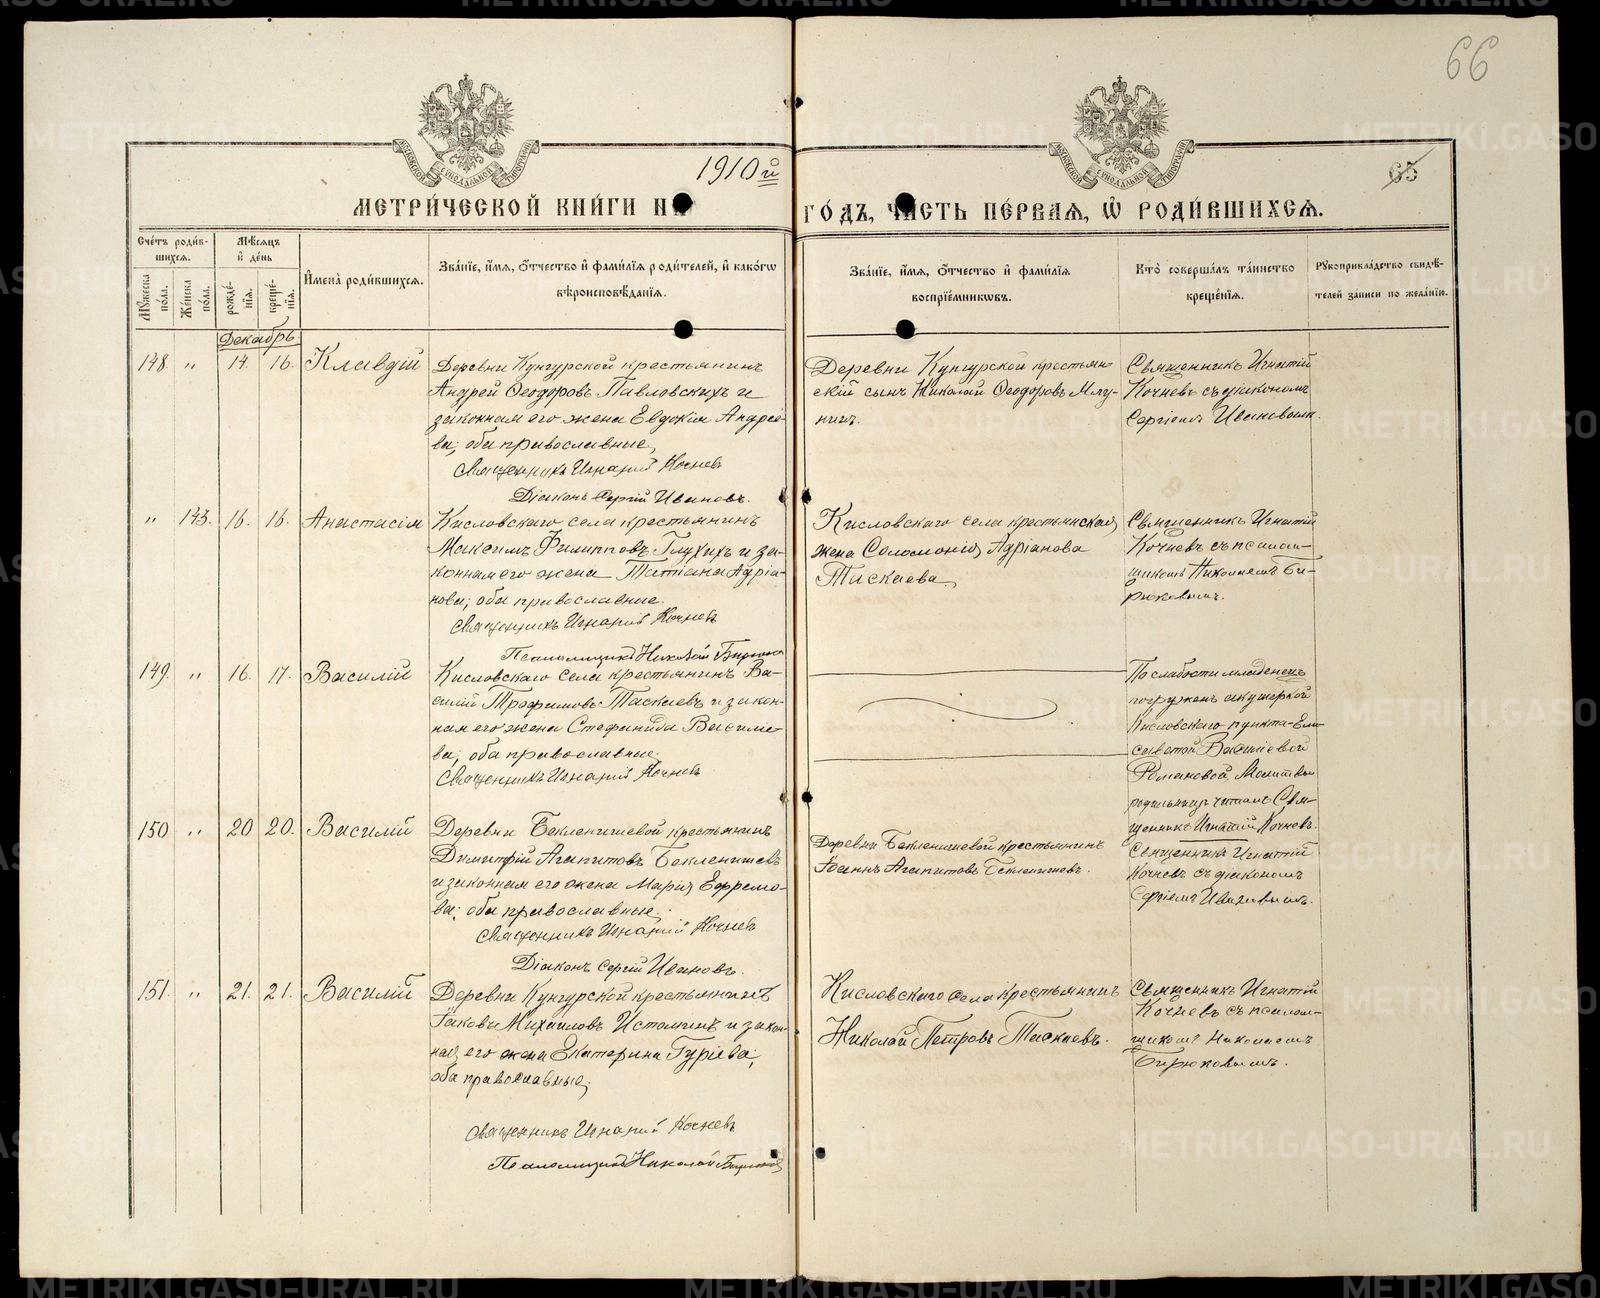 66
1910й
65
МЕТРИ́ЧЕСКОЙ КНИ́ГИ НА
ГО́ДЪ, ЧАСТЬ ПЕ́РВАЯ, Ѽ РОДИ́ВШИХСЯ.
Сче́тъ роди́в-
шихся.
Мꙋ́жеска по́ла.
Же́нска по́ла.
Мѣ́сяцъ
и҆ де́нь
рожде́-
нїя.
креще́-
нїя.
И҆мена̀ роди́вшихся.
Зва́нїе, и҆́мя, ѻ҆́тчество и҆ фами́лїя роди́телей, и҆ како́гѡ
вѣроисповѣ́данїя.
Зва́нїе, и҆́мя, ѻ҆́тчество и҆ фами́лїя
воспрїе́мникѡвъ.
Кто̀ соверша́лъ та́инство
креще́нїя.
Рꙋкоприкла́дство свидѣ́-
телей за́писи по жела́нїю.
Декабрь
148. „ 14. 16. Клавдій
Деревни Кунгурской крестьянинъ
Андрей Ѳеодоровъ Павловскихъ и
законная его жена Евдокія Андрее-
ва; оба православные,
Священникъ Игнатій Кочневъ
Діаконъ Сергій Ивановъ.
Деревни Кунгурской крестьян-
скій сынъ Николай Ѳеодоровъ Млу-
нинъ.
Священникъ Игнатій
Кочневъ съ діакономъ
Сергіемъ Ивановымъ.
„ 143. 16. 16. Анастасія
Кисловскаго села крестьянинъ
Максимъ Филипповъ Глухихъ и за-
конная его жена Татіана Адріа-
нова; оба православные.
Священникъ Игнатій Кочневъ
Псаломщикъ Николай Бирюковъ
Кисловскаго села крестьянская
жена Соломонія Адріанова
Таскаева,
Священникъ Игнатій
Кочневъ съ псалом-
щикомъ Николаемъ Би-
рюковымъ.
149. „ 16. 17. Василій
Кисловскаго села крестьянинъ Ва-
силій Трофимовъ Таскаевъ и закон-
ная его жена Стефанида Василье-
ва; оба православные.
Священникъ Игнатій Кочневъ
По слабости младенецъ
погруженъ акушеркой
Кисловскаго пункта Ели-
саветой Васильевой
Романовой, Молитвы
родильницѣ читалъ Свя-
щенникъ Игнатій Кочневъ.
150 „ 20 20. Василій
Деревни Бекленищевой крестьянинъ
Димитрій Агапитовъ Бекленищевъ
и законная его жена Марія Ефремо-
ва; оба православные.
Священникъ Игнатій Кочневъ
Діаконъ Сергій Ивановъ.
Деревни Бекленищевой крестьянинъ
Іоаннъ Агапитовъ Бекленищевъ.
Священникъ Игнатій
Кочневъ съ діакономъ
Сергіемъ Ивановымъ.
151. „ 21. 21. Василій
Деревни Кунгурской крестьянинъ
Іаковъ Михаиловъ Истоминъ и закон-
ная его жена Екатерина Гуріева;
оба православные,
Священникъ Игнатій Кочневъ
Псаломщикъ Николай Бирюковъ
Кисловскаго села крестьянинъ
Николай Петровъ Таскаевъ.
Священникъ Игнатій
Кочневъ съ псалом-
щикомъ Николаемъ
Бирюковымъ.
METRIKI.GASO-URAL.RU